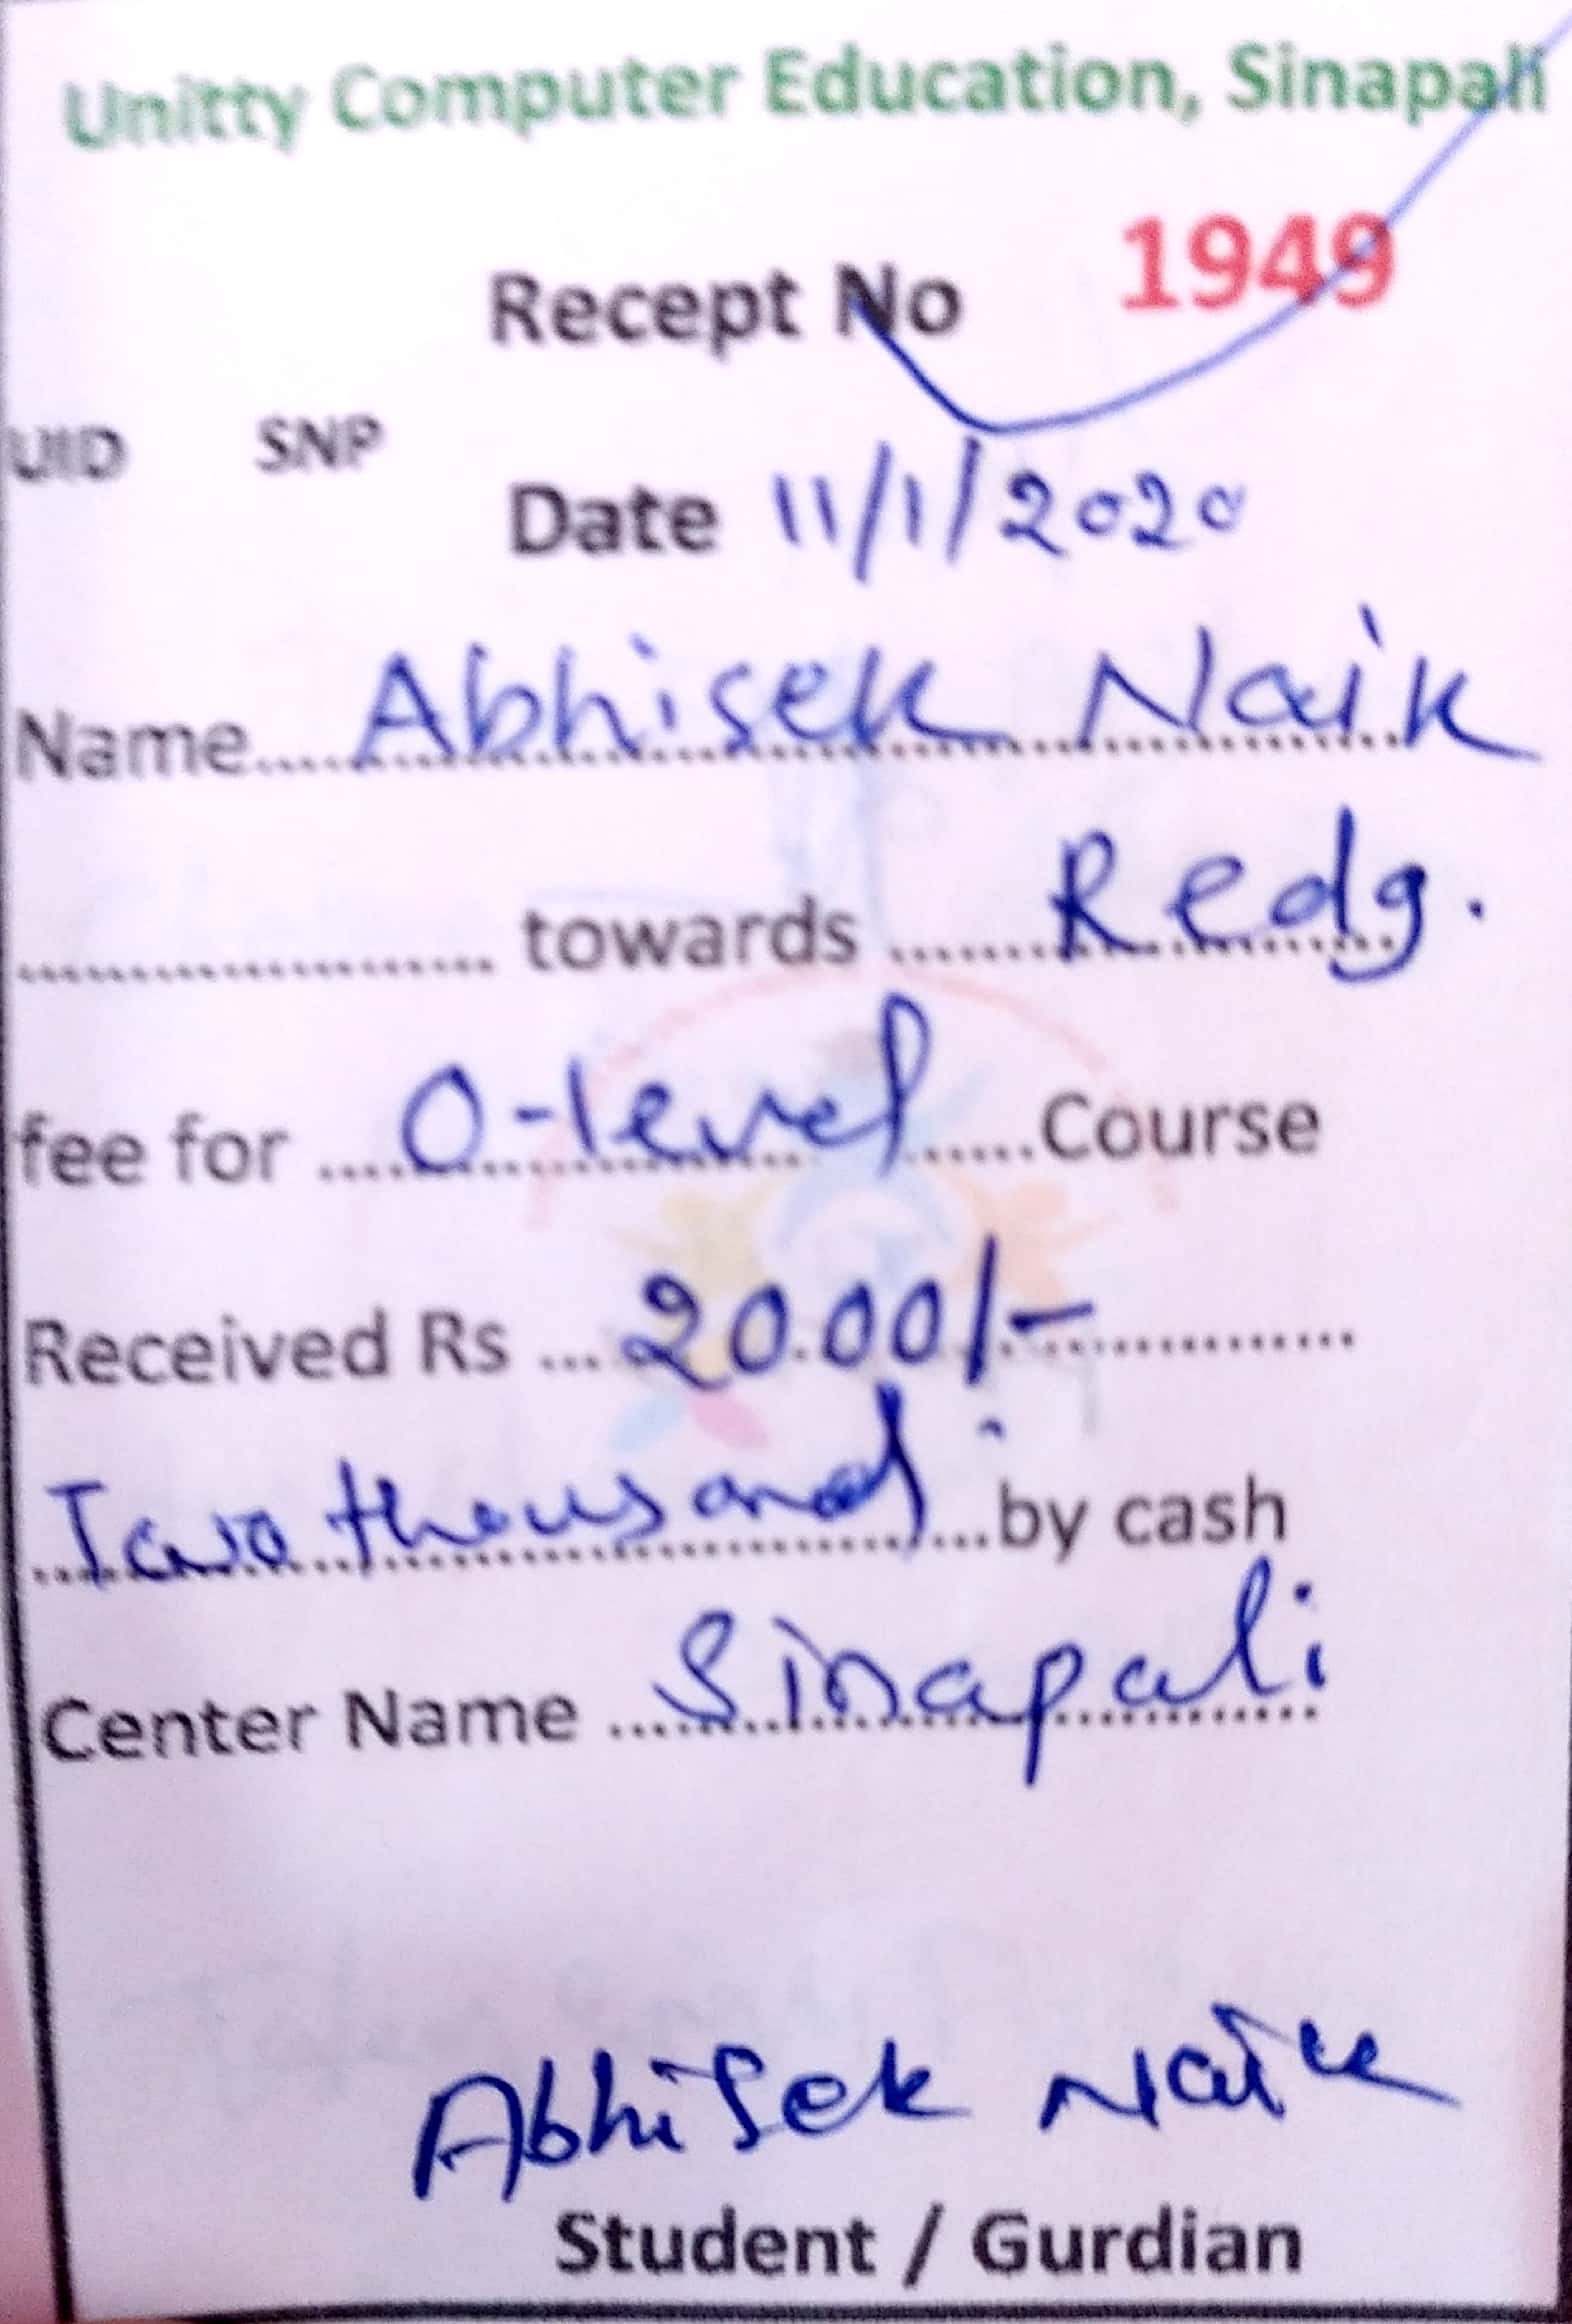 Unitty Computer Education, Sinapali
Recept No 1949
UID SNP
Date 11/1/2020
Name.... Abhisek Naik
.................... towards ...... Redg.
fee for .... O-level ......Course
Received Rs ... 20.00/- ..............
Two thousand ...by cash
Center Name .... Sinapali
Abhisek Naik
Student / Gurdian